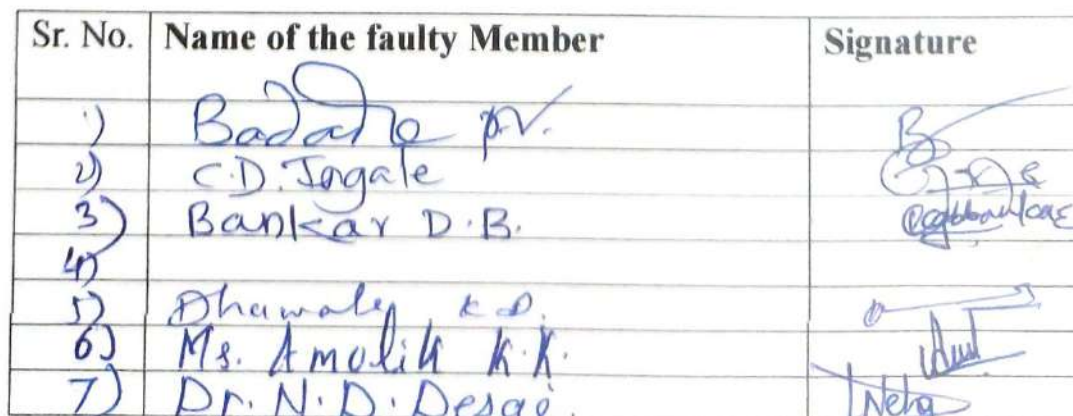 Sr. No. Name of the faulty Member Signature
1) Badadhe P.V.
2) C.D. Ingale
3) Bankar D.B.
4)
5) Dhawale K.D.
6) Ms. Amolik K.K.
7) Dr. N.D. Desai. Neha